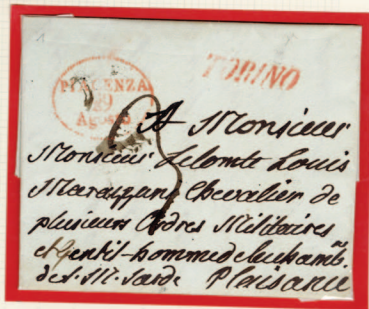 TORINO
PIACENZA
19
Agosto
A Monsieur
Monsieur Le Comte Louis
Chevalier de
plusieurs Ordres Militaires
et Gentil-homme de la chamb.
de S. M. Sarde Plaisance